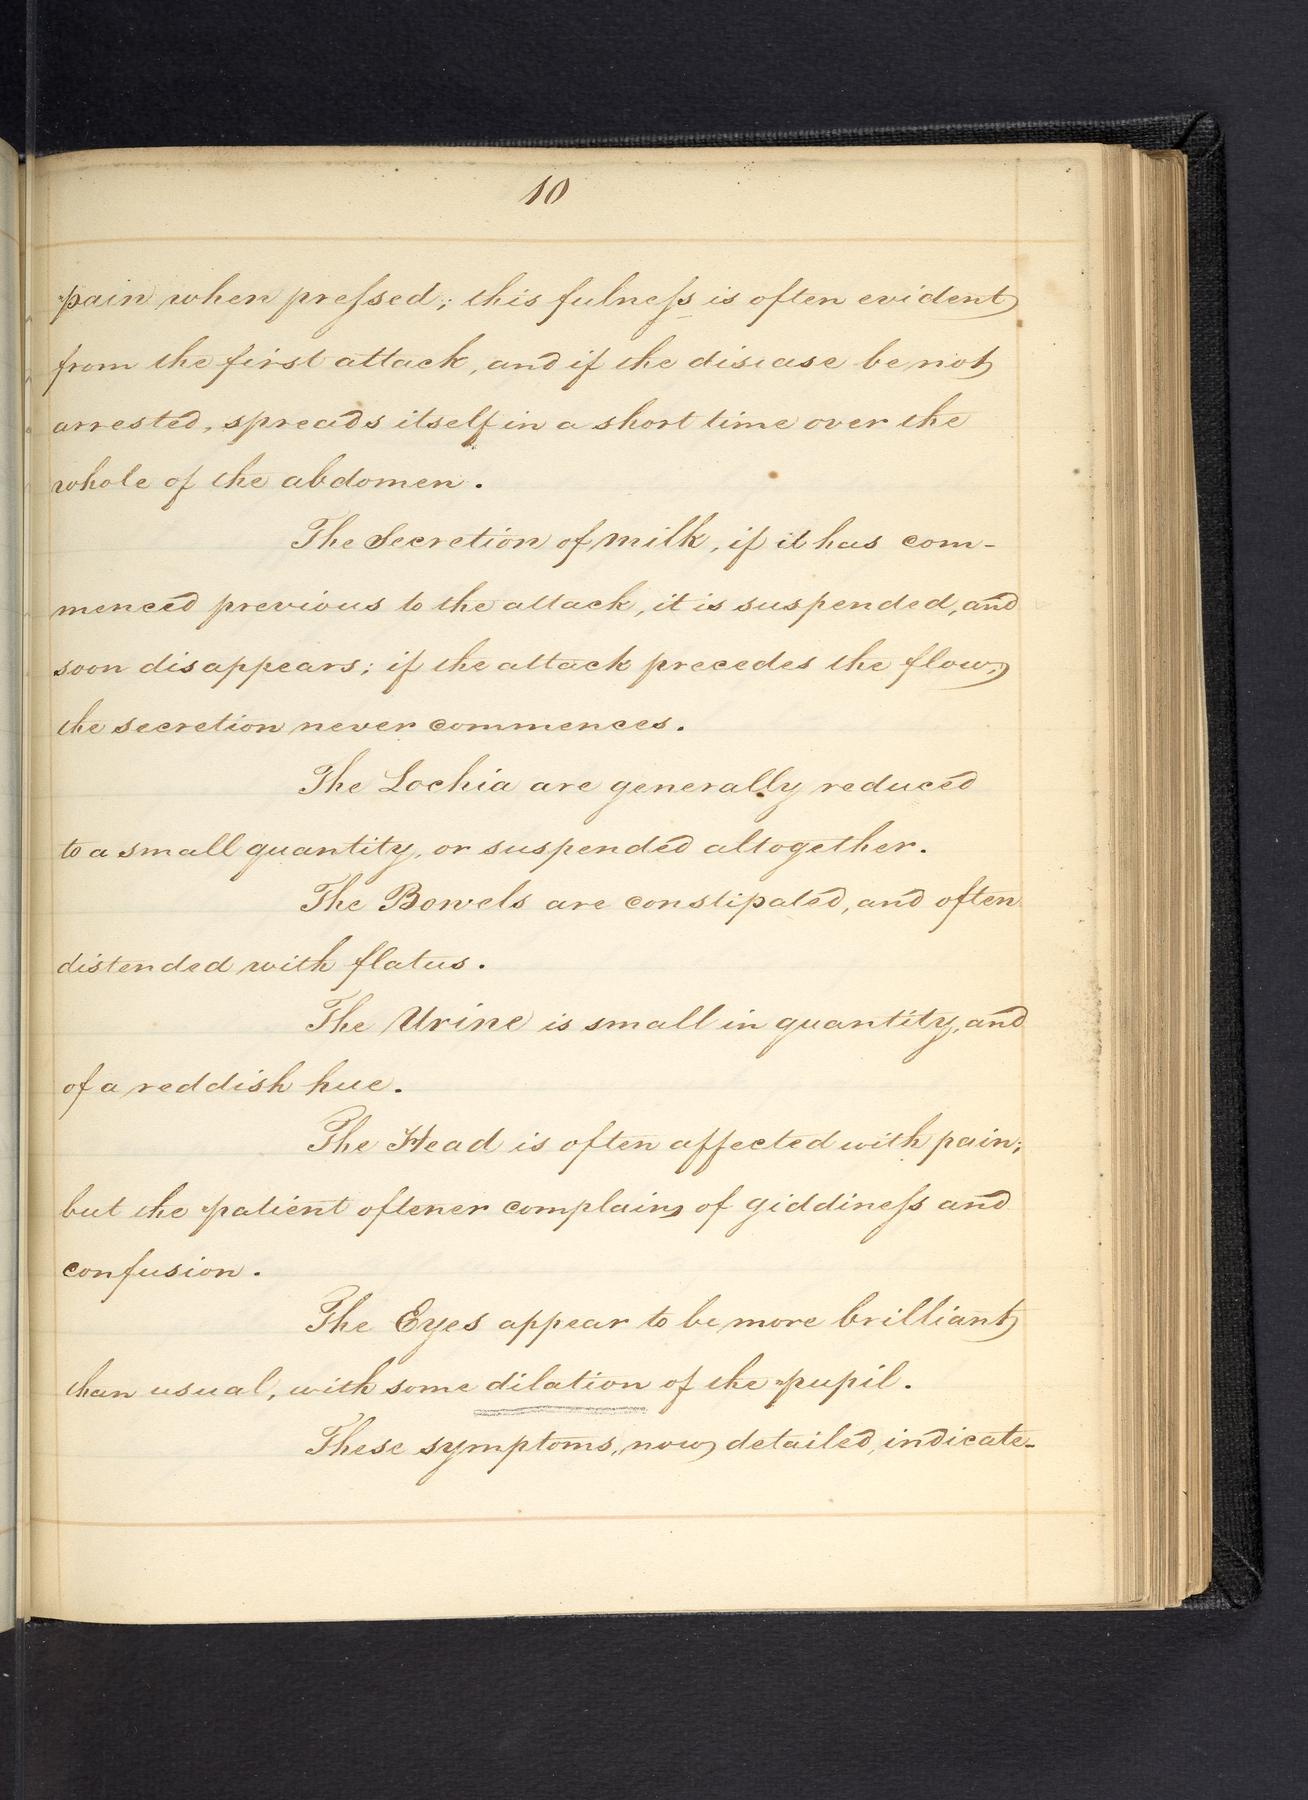 10
pain when preſsed; this fulneſs is often evident
from the first attack, and if the disease be not
arrested, spreads itself in a short time over the
whole of the abdomen.
The Secretion of milk, if it has com-
menced previous to the attack, it is suspended, and
soon disappears; if the attack precedes the flow,
the secretion never commences.
The Lochia are generally reduced
to a small quantity, or suspended altogether.
The Bowels are constipated, and often
distended with flatus.
The Urine is small in quantity, and
of a reddish hue.
The Head is often affected with pain;
but the patient oftener complains of giddineſs and
confusion.
The Eyes appear to be more brilliant
than usual, with some dilation of the pupil.
These symptoms, now detailed, indicate-